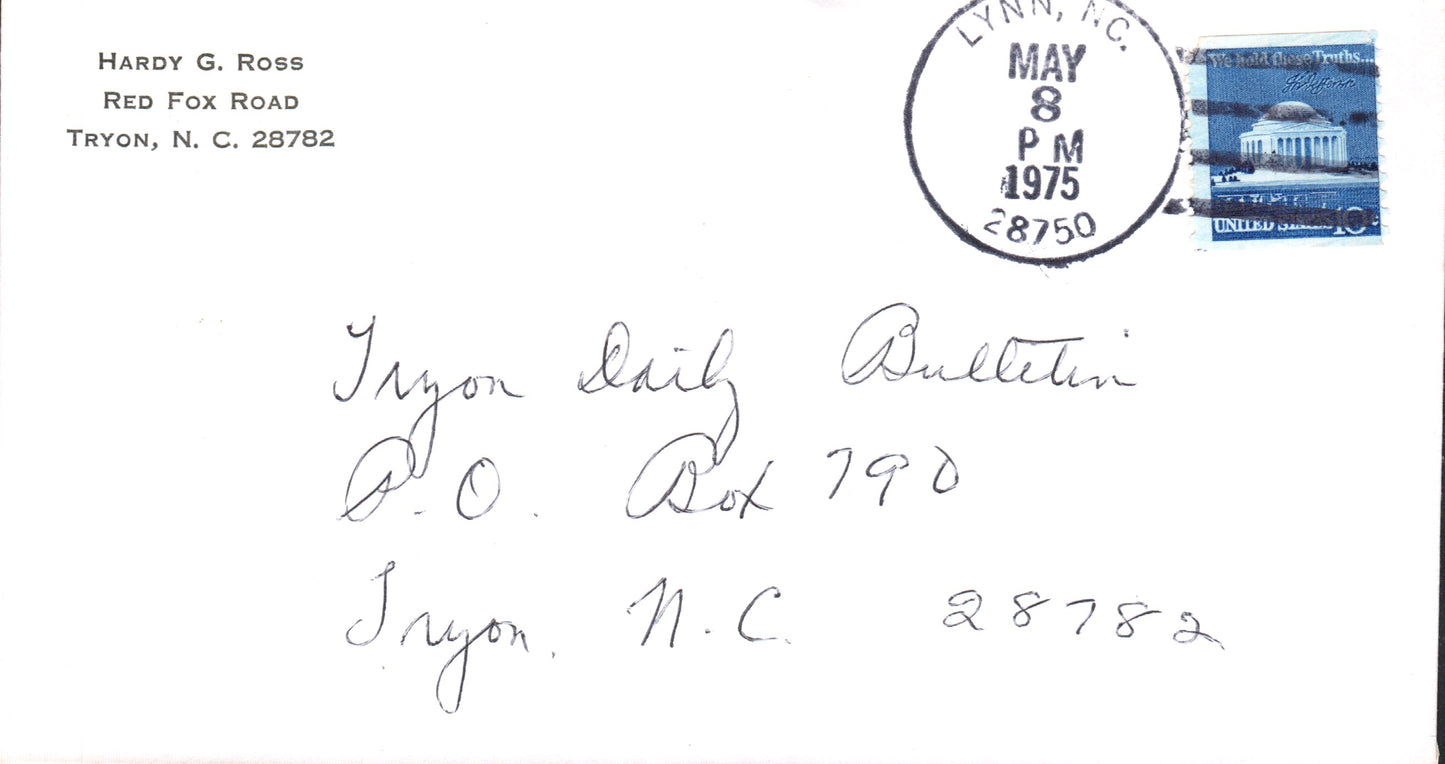 HARDY G. ROSS
RED FOX ROAD
TRYON, N. C. 28782
LYNN, NC.
MAY
8
PM
1975
28750
We hold these Truths...
UNITED STATES 10c
Tryon Daily Bulletin
P.O. Box 790
Tryon, N.C. 28782